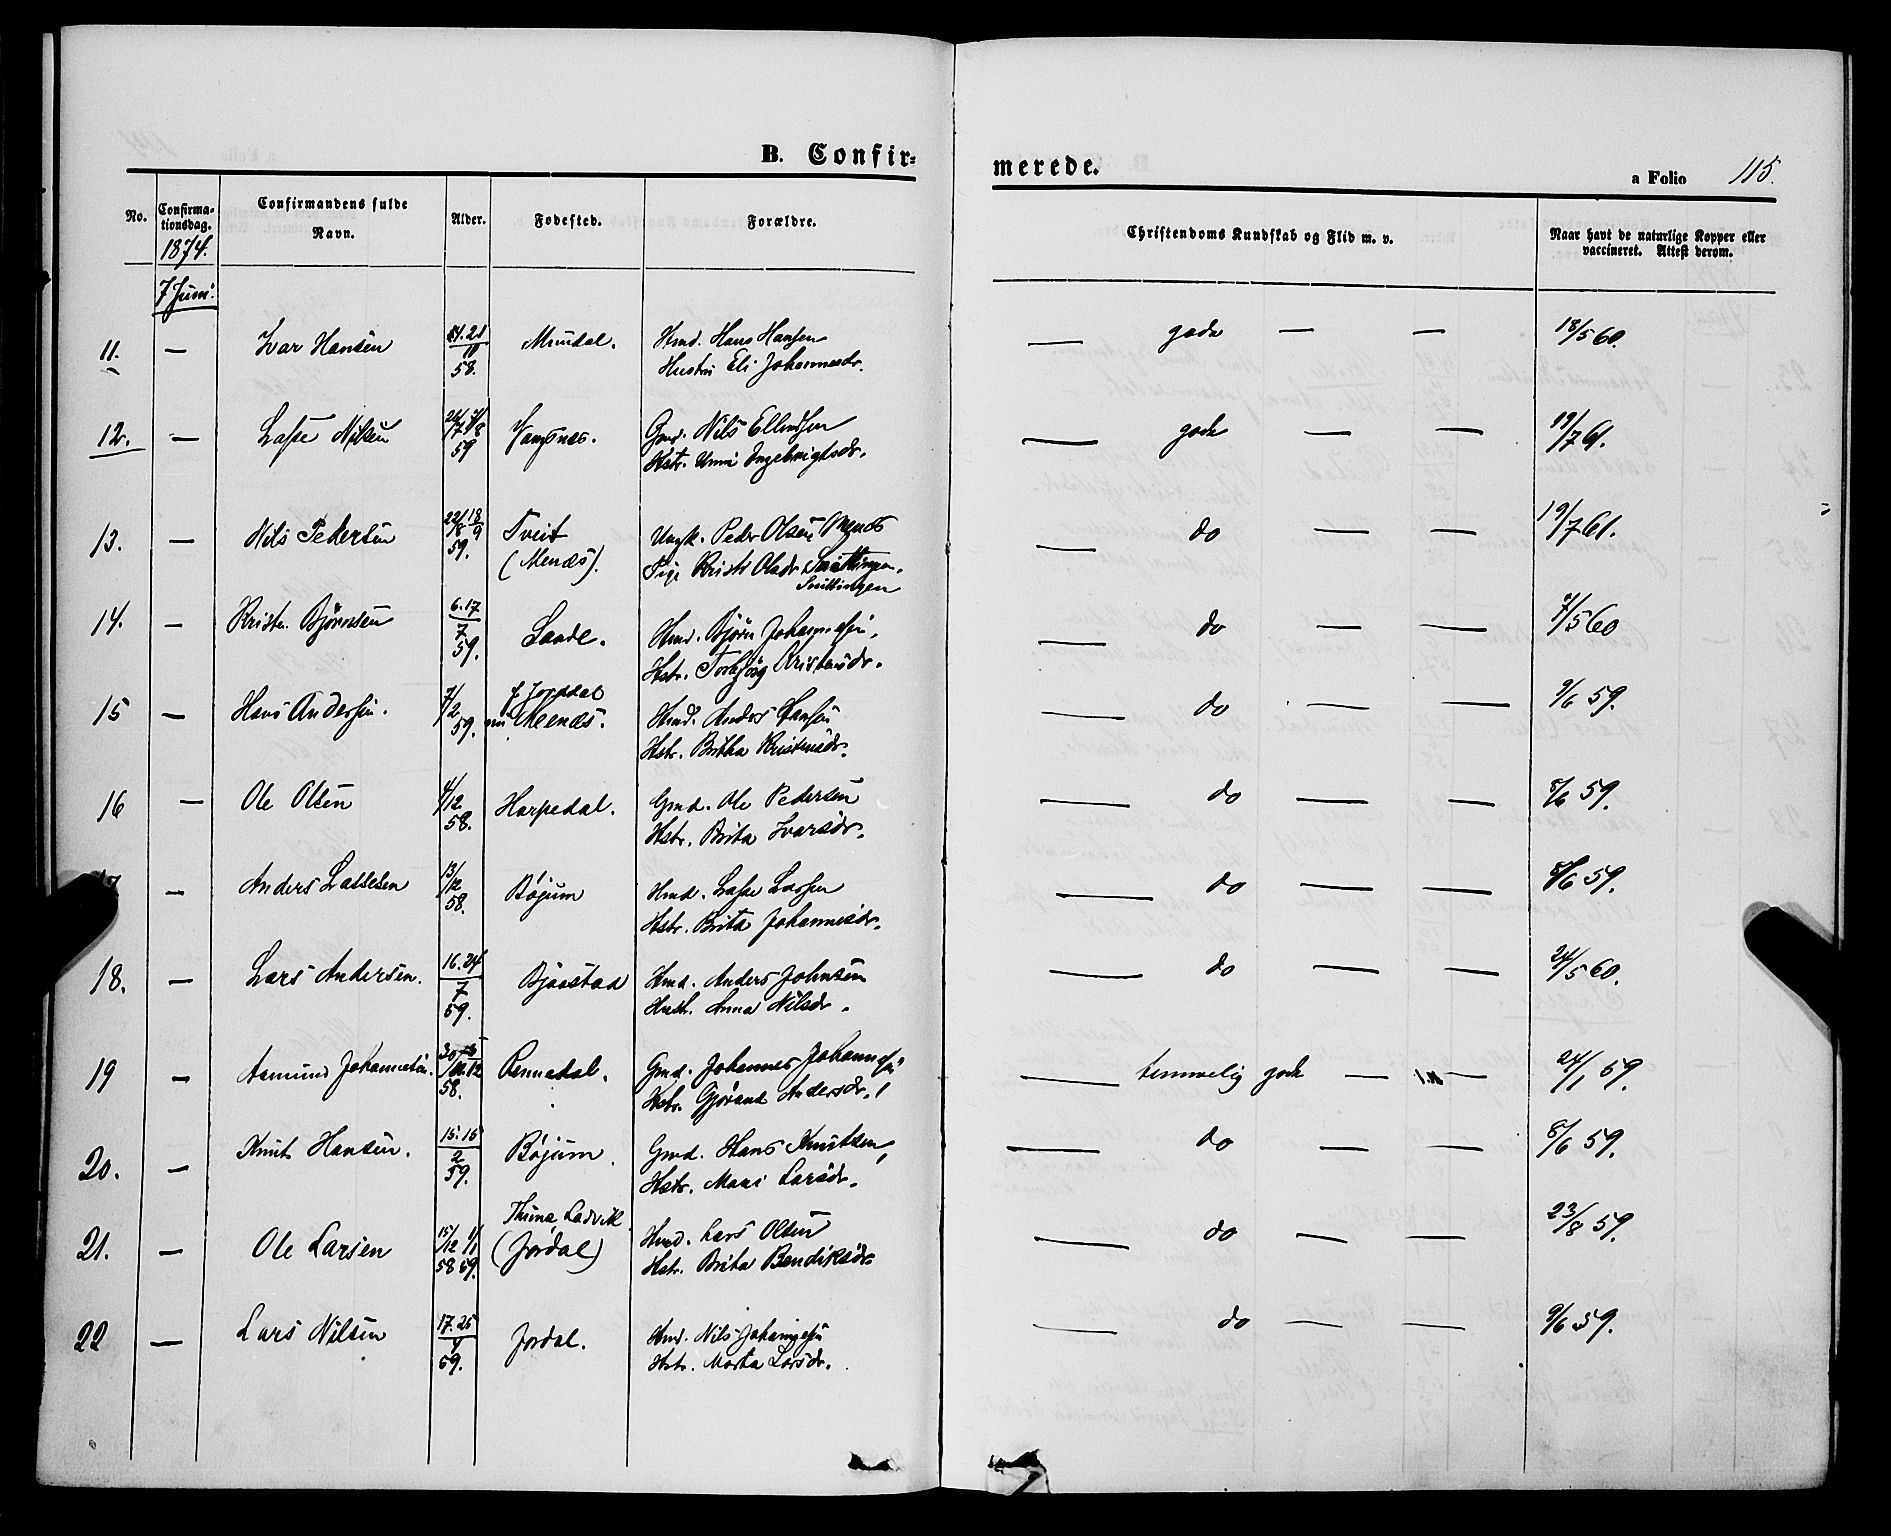 B. Confir=
merede.
a Folio 115.
No. Confirma-tionsdag. Confirmandens fulde Navn. Alder. Fødested. Forældre. Christendoms Kundskab og Flid m. v. Naar havt de naturlige Kopper eller vaccineret. Attest derom.
1874.
7 Juni.
11. — Ivar Hansen 21/11 58. Mundal. Hmd. Hans Hansen — gode — — 18/5 60.
Hustru Eli Johannesdr.
12. — Lasse Nilsen 59 Vangsnes. Gmd. Nils Ellendsen — gode — — 19/7 61.
Hstr. Unni Ingebrigtsdr.
13. — Nils Pedersen 22/8 18/9 59. Tveit Ungk. Peder Olsen Menæs — do — — 19/7 61.
(Menæs). Pige Kristi Olsdr Snittingen.
Snittingen
14. — Kristen Bjørnsen 6.17/7 59. Sande. Hmd. Bjørn Johannesen, — do — — 7/5 60
Hstr. Torbjørg Kristensdr.
15 — Hans Andersen. 7/2 59. f. Jordal
nu Menæs. Hmd. Anders Hansen — do — — 9/6 59.
Hstr. Britha Kristensdr.
16 — Ole Olsen 4/12 58. Harpedal. Gmd. Ole Pedersen — do — — 8/6 59.
Hstr. Brita Ivarsdr.
— Anders Lassesen 13/12 58. Bøjum Hmd. Lasse Larsen — do — — 8/6 59.
Hstr. Brita Johannesdr.
18. — Lars Andersen. 16.24/7 59. Bjåstad Hmd. Anders Johnsen — do — — 24/5 60.
Hustr. Anna Nilsdr.
19 — Aamund Johannesen. 58. Rennedal. Gmd. Johannes Johannesen — temmelig gode — — 24/1 59.
Hstr. Gjørand Andersdr.
20. — Knut Hansen. 15.15/2 59. Bøjum. Gmd. Hans Knutsen, — do — — 8/6 59.
Hstr. Mari Larsdr.
21. — Ole Larsen 15/12 1/1 58 59. Thune, Ladvik.
(Jordal) Hmd. Lars Olsen — do — — 23/8 59.
Hstr. Brita Bendiksdr.
22 — Lars Nilsen 17.25/4 59. Jordal. Hmd. Nils Johannesen — do — — 9/6 59.
Hstr. Marta Larsdr.